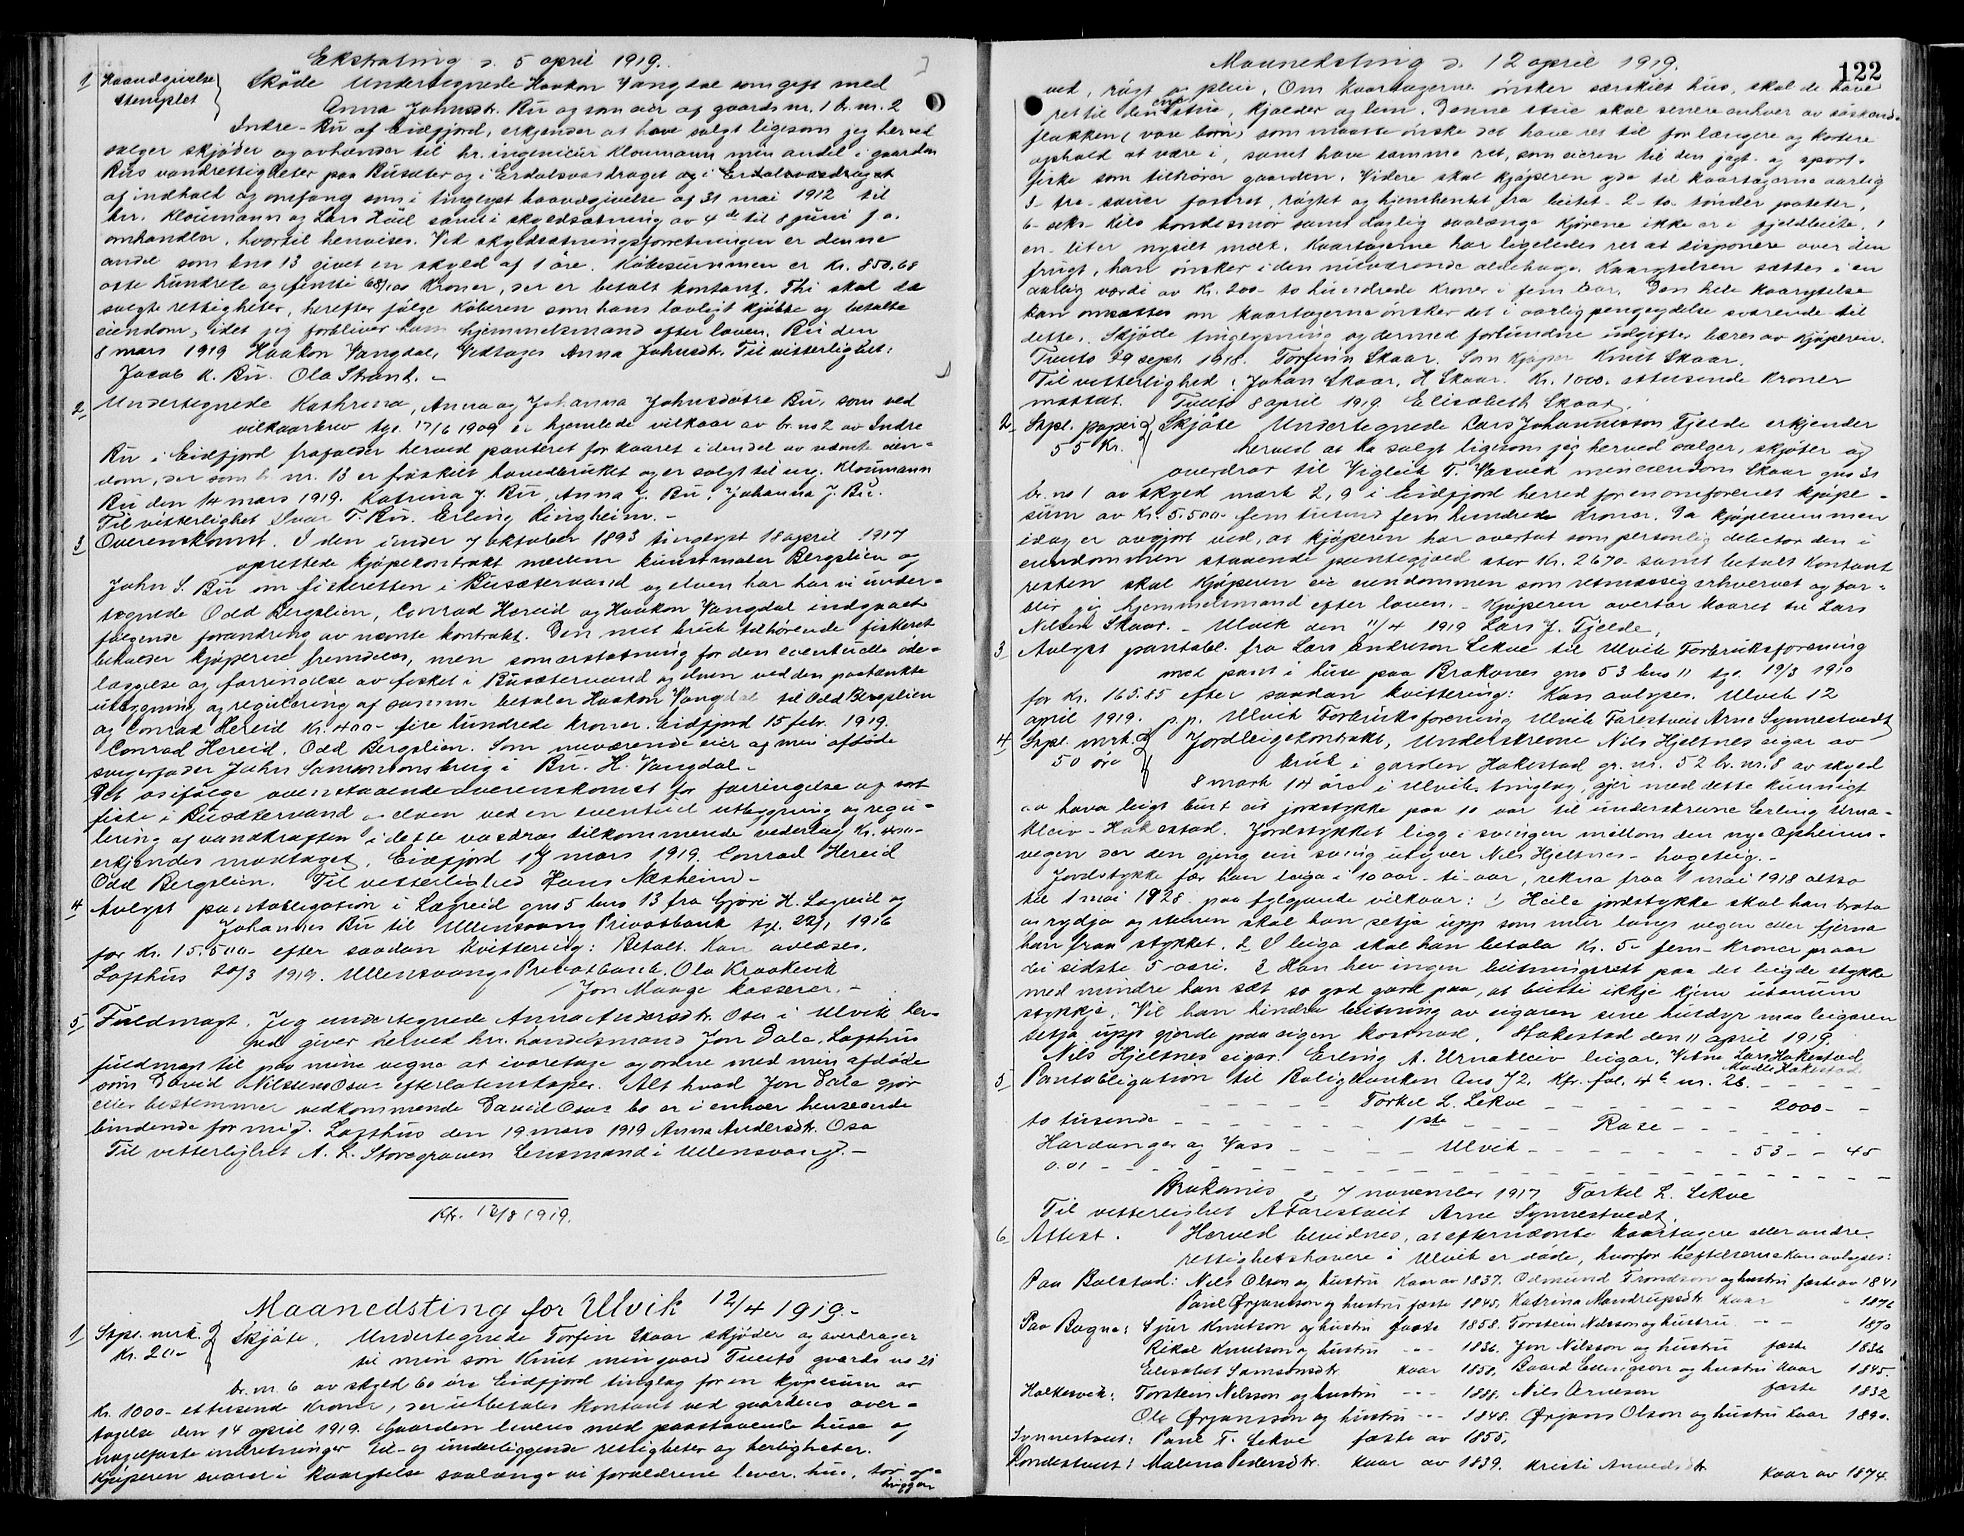 Ekstrating d. 5 april 1919.
1 Haandgivelse stemplet } Skøde Undertegnede Haakon Vangdal som gift med
Anna Johnsdtr. Bu og som eier af gaards nr. 1 b.nr. 2
Indre-Bu af Eidfjord, erkjender at have solgt ligesom jeg herved
sælger skjøder og avhænder til hr. ingeniør Kloumann min andel i gaarden
Bus vandrettigheter paa Busæter og i Erdalsvasdraget og i Erdalsvasdraget
af indhold og omfang som i tinglyst haandgivelse af 31 mai 1912 til
hrr. Kloumann og Lars Hus samt i skyldsætning av 4de til 8 juni f.a.
omhandler, hvortil henvises. Ved skyldsætningsforretningen er denne
andel som bno 13 givet en skyld af 1 øre. Købesummen er Kr. 850,68
otte hundrede og femti 68/100 Kroner, der er betalt kontant. Thi skal de
solgte rettigheter, herefter følge Køberen som hans lovligt kjøbte og betalte
eiendom, idet jeg forbliver hans hjemmelsmand efter loven. Bu den
8 mars 1919 Haakon Vangdal, Vedtages Anna Johnsdtr. Til vitterlighet:
Jacob K. Bu. Ola Strand. -
2 Undertegnede Kathrina, Anna og Johanna Johnsdøtre Bu, som ved
vilkaarbrev tgl. 17/6 1909 er hjemlede vilkaar av br. no 2 av Indre
Bu i Eidfjord frafalder herved panteret for kaaret i den del av nævnte eien-
dom, der som b. nr. 13 er fraskilt hovedbruket og er solgt til ing. Kloumann
Bu den 14 mars 1919. Katrina J. Bu, Anna J. Bu, Johanna J. Bu.
Til vitterlighet Ivar T. Bu. Erling Ringheim. -
3 Overenskomst. I den under 7 oktober 1893 tinglyst 18 april 1917
oprettede kjøpekontrakt mellem kunstmaler Bergslien og
John S. Bu om fiskeretten i Busætervand og elven har vi under-
tegnede Odd Bergslien, Conrad Hereid og Haakon Vangdal indgaaet
følgende forandring av nævnte kontrakt. Den met bruk tilhørende fiskeret
beholder kjøperne fremdeles, men som erstatning for den eventuelle øde-
læggelse og forringelse av fisket i Busætervand og elven ved den paatænkte
utbygning og regulering af samme betaler Haakon Vangdal til Odd Bergslien
og Conrad Hereid Kr. 400- fire hundrede kroner. Eidfjord 15 febr. 1919.
Conrad Hereid. Odd Bergslien. Som nuværende eier af min afdøde
svigerfader John Samsonsons brug i Bu. H. Vangdal -
Det os ifølge ovenstaaende overenskomst for forringelse af vort
fiske i Busætervand og elven ved en eventuel utbygning og regu-
lering af vandkraften i dette vasdrag tilkommende vederlag Kr. 400-
erkjendes modtaget. Eidfjord 17 mars 1919. Conrad Hereid
Odd Bergslien. Til vitterlighed Hans Næsheim -
4 Avlyst pantobligation i Lægreid gno 5 bno 13 fra Gjøri H. Lægreid og
Johannes Bu til Ullensvang Privatbank tgl. 22/1 1916
for Kr. 15.500- efter saadan kvittering: Betalt. Kan avlæses.
Lofthus 20/3 1919. Ullensvangs Privatbank. Ola Kraakevik
Jon Maage kasserer. -
5 Fuldmagt. Jeg undertegnede Anna Andersdtr. Osa i Ulvik her-
ved giver herved hr. handelsmand Jon Dale, Lofthus
fuldmagt til paa mine vegne at ivaretage og ordne med min afdøde
søn David Nilssens Osas efterlatenskaper. Alt hvad Jon Dale gjør
eller bestemmer vedkommende David Osas bo er i enhver henseende
bindende for mig. Lofthus den 19 mars 1919 Anna Andersdtr. Osa
Til vitterlighet A. L. Storegraven Lensmand i Ullensvang. -
Kfr. 12/8 1919.
Maanedsting for Ulvik 12/4 1919. -
1 Stpl. merk. Kr. 20- } Skjøte. Undertegnede Torfin Skaar skjøder og overdrager
til min søn Knut min gaard Tveito gaards no 21
br. nr. 6 av skyld 60 øre Eidfjord tinglag for en kjøpesum av
Kr. 1000- et tusende Kroner, der utbetales kontant ved gaardens over-
tagelse den 14 april 1919. Gaarden leveres med paastaaende huse og
nagelfaste indretninger til- og underliggende rettigheter og herligheter.
Kjøperen svarer i kaarytelse saalænge vi forældrene lever. hus, tør op-
hugget
Maanedsting d. 12 april 1919. 122
ved, røgt og pleie. Om kaartagerne ønsker særskilt hus, skal de have
ret til den ene stue, kjælder og lem. Denne stue skal senere enhver av søskende-
flokken (vore børn) som maatte ønske det have ret til for længere og kortere
ophold at være i, samt have samme ret, som eieren til den jagt- og sport-
fiske som tilhører gaarden. Videre skal kjøperen yde til kaartagerne aarlig
3- tre- sauer fostret, røgtet og hjemhentet fra beitet- 2- to tønder poteter,
6- seks kilo bondesmør samt daglig saalænge kjørene ikke er i fjeldbeite, 1
en- liter nysilt mælk. Kaartagerne har ligeledes ret at disponere over den
frugt, han ønsker i den nuværende aldehage. Kaarytelsen sættes i en
aarlig værdi av Kr. 200- to hundrede Kroner i fem aar. Den hele kaarytelse
kan omsættes om kaartagerne ønsker det i aarlig pengeydelse svarende til
dette. Skjøde tinglysning og dermed forbundne utgifter bæres av kjøperen.
Tveito 29 sept. 1918. Torfinn Skaar. Som kjøper Knut Skaar.
Til vitterlighed: Johan Skaar, H Skaar. Kr. 1000- ettusende Kroner
mottat. Tveito 8 april 1919 Elisabeth Skaar.
2 Stpl. papir 55 Kr. } Skjøte Undertegnede Lars Johannesson Fjelde erkjender
herved at ha solgt ligesom jeg herved sælger, skjøter og
overdrar til Vigleik T. Væsvik min eiendom Skaar gno 21
br. no 1 av skyld mark 2,9 i Eidfjord herred for en omforenet kjøpe-
sum av Kr. 5.500- fem tusend fem hundrede Kroner. Da kjøpesummen
idag er avgjort ved, at kjøperen har overtat som personlig debitor den i
eiendommen staaende pantegjæld stor Kr. 2670- samt betalt kontant
resten skal kjøperen eie eiendommen som retmæssig erhvervet og for-
blir jeg hjemmelsmand efter loven. - Kjøperen overtar kaaret til Lars
Nilsen Skaar. - Ulvik den 11/4 1919 Lars J. Fjelde.
3 Avlyst pantobl. fra Lars Endreson Lekve til Ulvik Forbruksforening
med pant i huse paa Brakanes gno 53 bno 11 tgl. 19/3 1910
for Kr. 165.85 efter saadan kvittering: Kan avlyses. Ulvik 12
april 1919. p.p. Ulvik Forbruksforening Ulvik Farestveit Arne Synnestvedt
4 Stpl. mrk. 50 øre } Jordleigekontrakt. Underskrevne Nils Hjeltnes eigar av
bruk i garden Hakestad gr. nr. 52 br. nr. 8 av skyld
8 mark 14 øre i Ulvik tinglag, gjer med dette kunnigt
aa hava leigt burt eit jordstykke paa 10 aar til underskrevne Erling Urna-
kleiv - Hakestad. Jordstykket ligg i svingen millom den nye Opheims-
vegen der den gjeng ein sving utyver Nils Hjeltnes- hageteig. -
Jordstykke fær han leiga i 10 aar- ti- aar, rekna fraa 1 mai 1918 altso
til 1 mai 1928- paa fylgjande vilkaar: 1 Heile jordstykke skal han brota
os rydja og steinen skal han setja upp som mur langs vegen eller fjerna
han fraa stykket. 2 I leiga skal han betala Kr. 5- fem- kroner pr aar
dei sidste 5 aari. 3 Han hev ingen beitningsrett paa det leigde stykke
med mindre han sæt so god gard paa, at beitti ikkje kjem utanum
stykkje. Vil han hindra beitning av eigaren sine husdyr maa leigaren
setja upp gjerde paa eigen kostnad. Hakestad den 11 april 1919.
Nils Hjeltnes eigar. Erling A. Urnakleiv leigar. Vitne Lars Hakestad
Madli Hakestad
5 Pantobligation til Boligbanken Ans 72. Kfr. fol. 46 nr. 26. - - -
- - - - - Torkel L. Lekve - - - - - 2000- -
to tusende - - - - - 1ste - - - - Rose - - - - -
Hardanger og Voss - - - - - Ulvik - - - - - - 53 - - 45
0.01 - - - - - - - - - -
Brakanes d. 7 november 1917 Torkel L. Lekve
Til vitterlighet A Farestveit Arne Synnestvedt.
6 Attest. Herved bevidnes, at efternævnte kaartagere eller andre
rettighetshavere i Ulvik er døde, hvorfor heftelserne kan avlyses:
Paa Bolstad: Nils Olson og hustru kaar av 1837. Odmund Trondson og hustru fæste av 1841
Paul Ørjanson og hustru fæste 1845. Katrina Mandrupsdtr. kaar " 1876
Paa Bagne: Sjur Knutson og hustru fæste 1858. Torstein Nilsson og hustru - " - 1870
Rikol Knutson og hustru - " - 1836. Jon Nilsson og hustru fæste 1836
Elisabet Samsonsdtr. kaar 1850. Baard Edvigson og hustru kaar 1845.
Halkesvik: Torstein Nilsson og hustru - " - 1888. Nils Arneson fæste 1832
Ola Ørjansson og hustru - " - 1848. Ørjans Olson og hustru kaar 1890.
Synnestveit: Paul T. Lekve fæste av 1855.
Rondestveit: Malena Pedersdtr. kaar av 1839. Kristi Amundsdtr kaar av 1874.